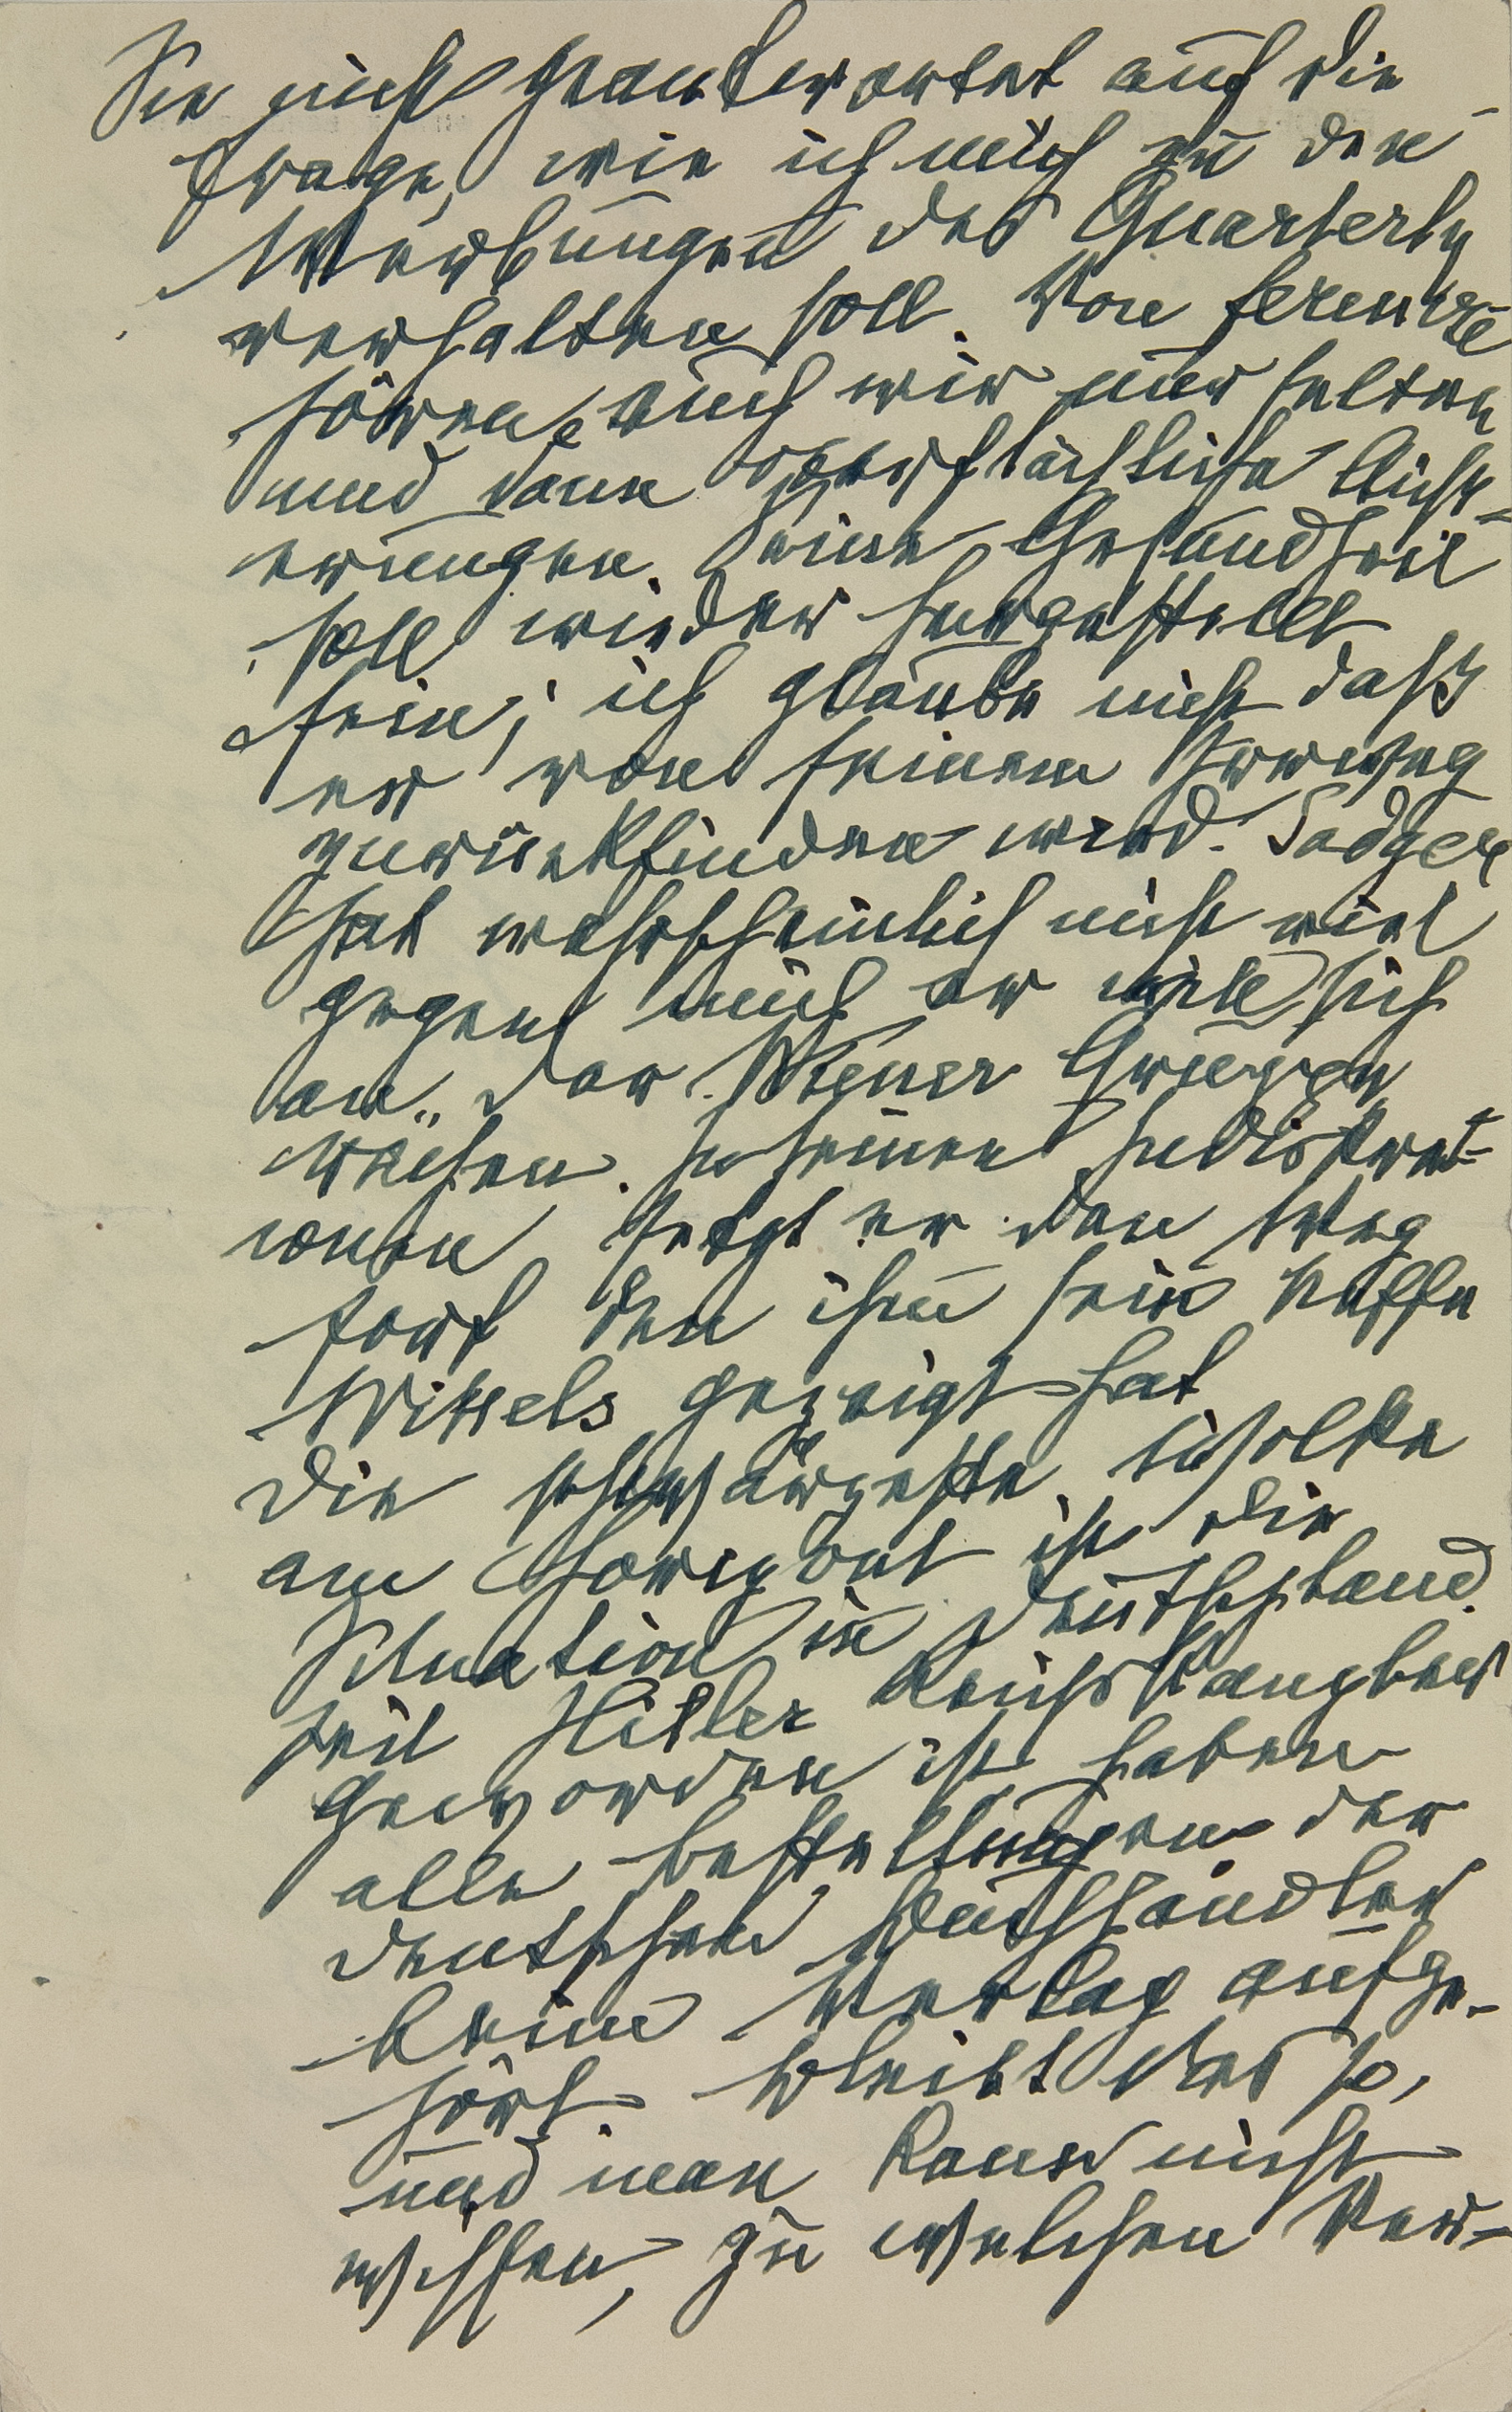 Sie nicht geantwortet auf die
Frage, wie ich mich zu den
Werbungen des Quarterly
verhalten soll. Von Ferenczi
hören auch wir nur selten
und dann oberflächliche Äuße-
rungen. Seine Gesundheit
soll wieder hergestellt
sein; ich glaube nicht daß
er von seinem Irrweg
zurückfinden wird. Sadger
hat wahrscheinlich nicht viel
gegen mich er will sich
an der Wiener Gruppe
rächen. In seinen Indiskret-
ionen setzt er den Weg
fort den ihm sein Neffe
Wittels gezeigt hat
Die schwärzeste Wolke
am Horizont ist die
Situation in Deutschland.
Seit Hitler Reichskanzler
geworden ist haben
alle Bestellungen der
deutschen Buchhändler
beim Verlag aufge-
hört. Bleibt das so,
und man kann nicht
wissen, zu welchen Ver-